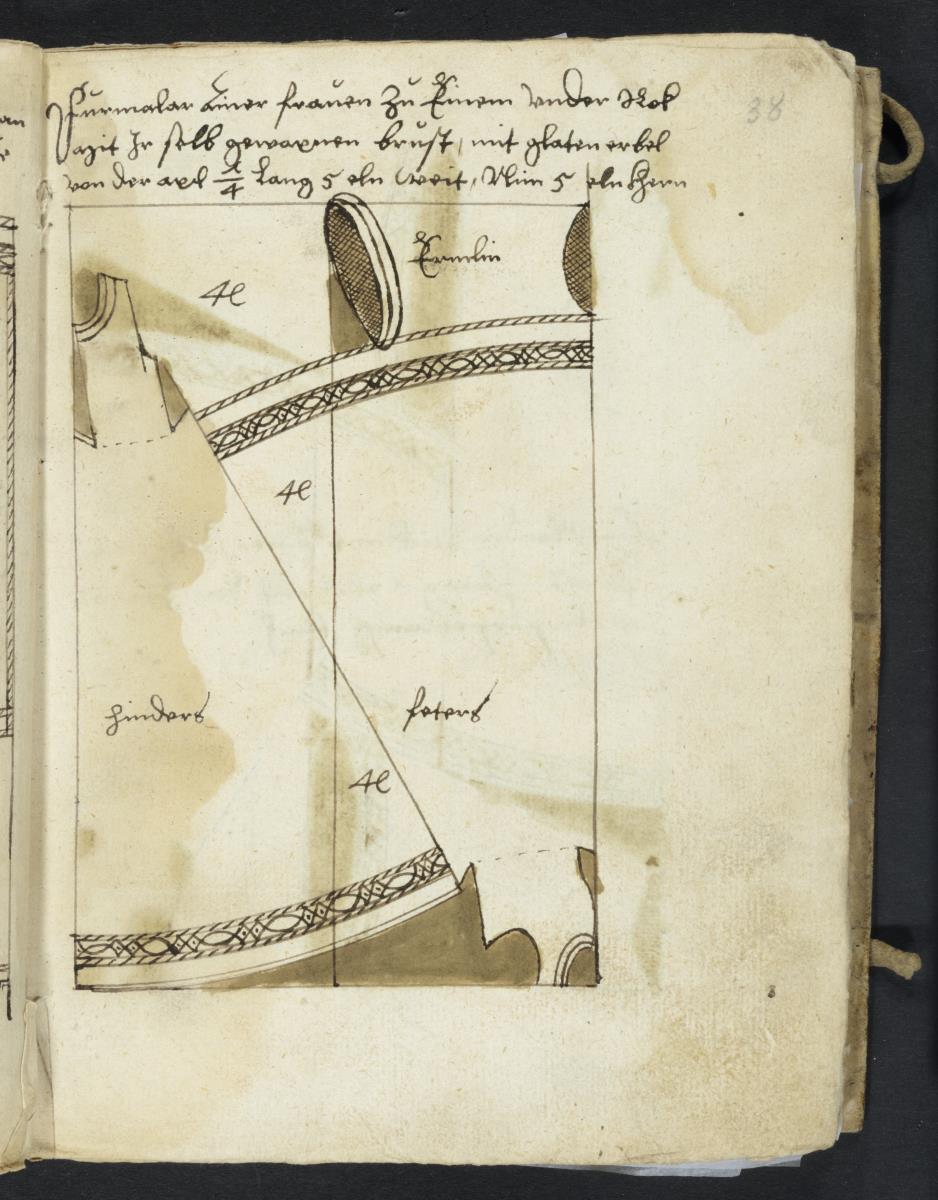 Furmalar Einer frauen zu Einem Vnder Rok
mit Ir selb gewaxnen brust, mit glaten erbel
von der axl 5/4 lang 5 eln weit, Nim 5 eln
38
Ermlin
4e
4e
hinders
feters
4e